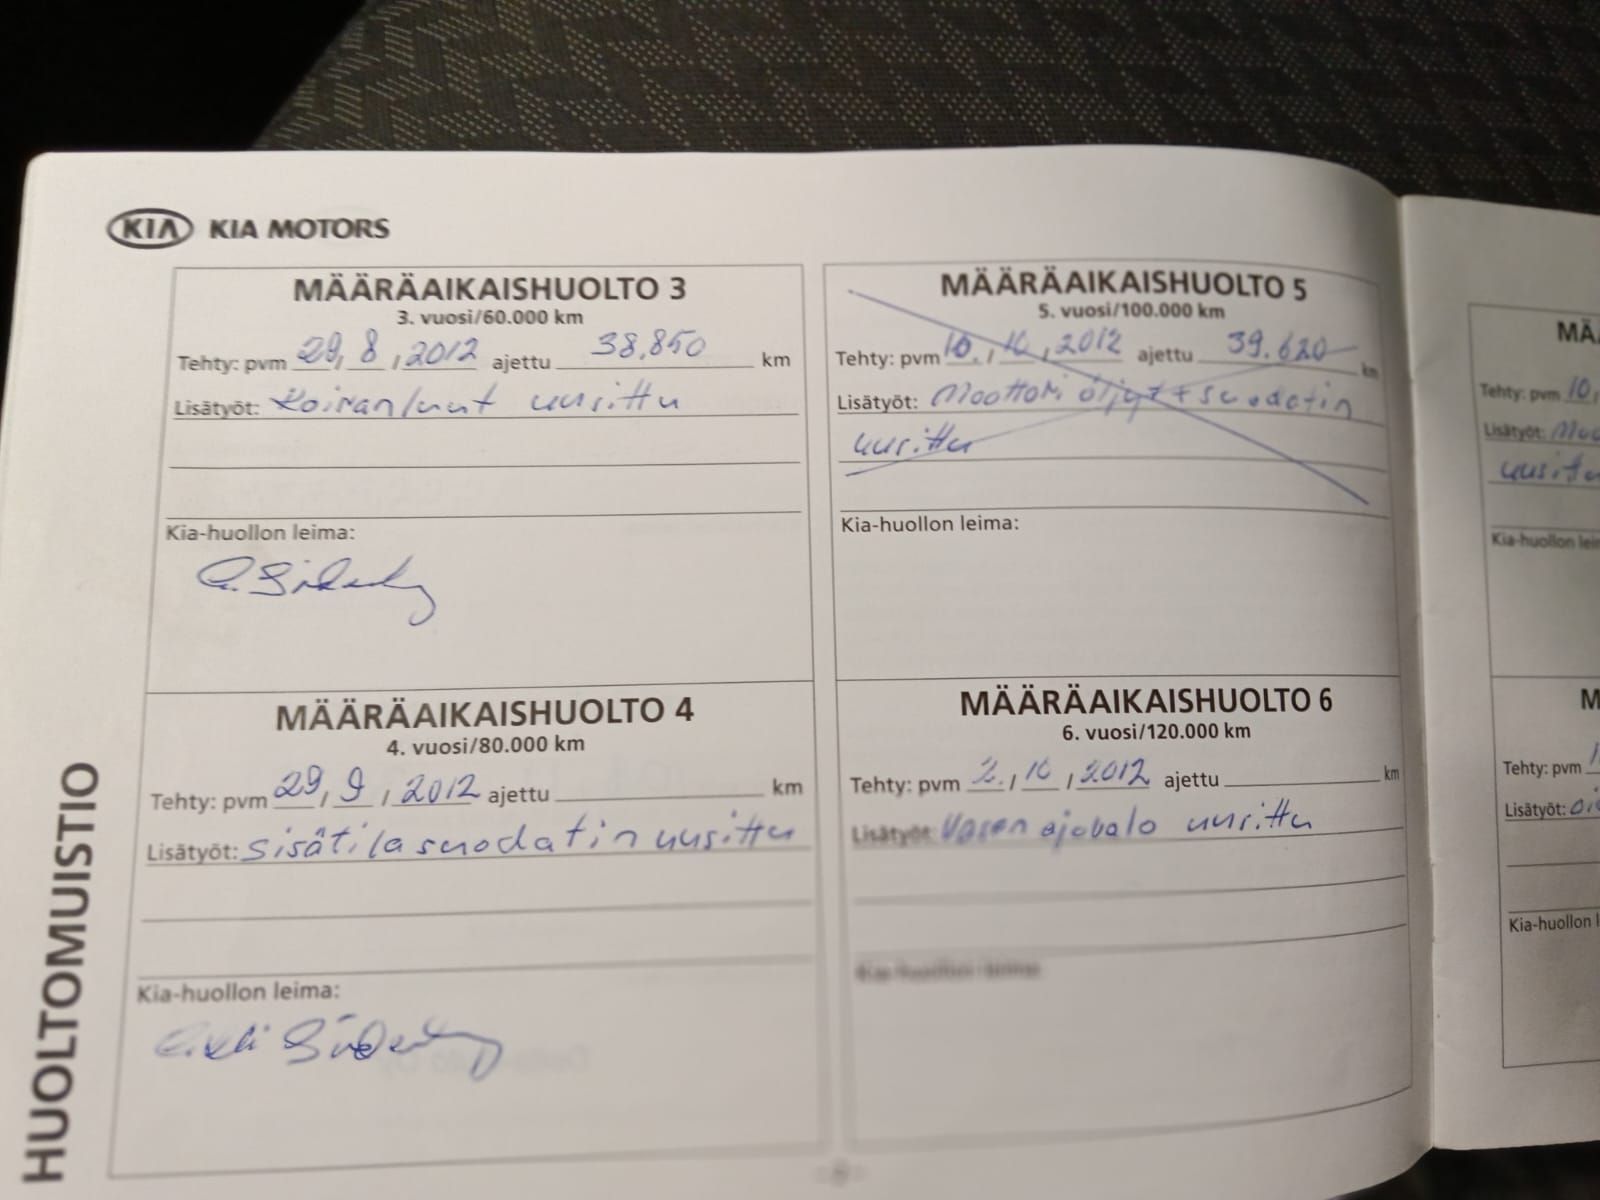 KIA KIA MOTORS
MÄÄRÄAIKAISHUOLTO 3
3. vuosi/60.000 km
Tehty: pvm 29, 8, 2012 ajettu 38,850 km
Lisätyöt: Koiranluut uusittu
Kia-huollon leima:
MÄÄRÄAIKAISHUOLTO 4
4. vuosi/80.000 km
Tehty: pvm 29, 9, 2012 ajettu km
Lisätyöt: Sisätilasuodatin uusittu
Kia-huollon leima:
MÄÄRÄAIKAISHUOLTO 5
5. vuosi/100.000 km
Tehty: pvm 10./10, 2012 ajettu 39.620 km
Lisätyöt: Moottori öljyt + suodatin
uusittu
Kia-huollon leima:
MÄÄRÄAIKAISHUOLTO 6
6. vuosi/120.000 km
Tehty: pvm 2./10/2012 ajettu km
Lisätyöt: Vasen ajovalo uusittu
Kia-huollon leima:
HUOLTOMUISTIO
Tehty: pvm 10,
Lisätyöt:
Kia-huollon
Tehty: pvm
Lisätyöt:
Kia-huollon